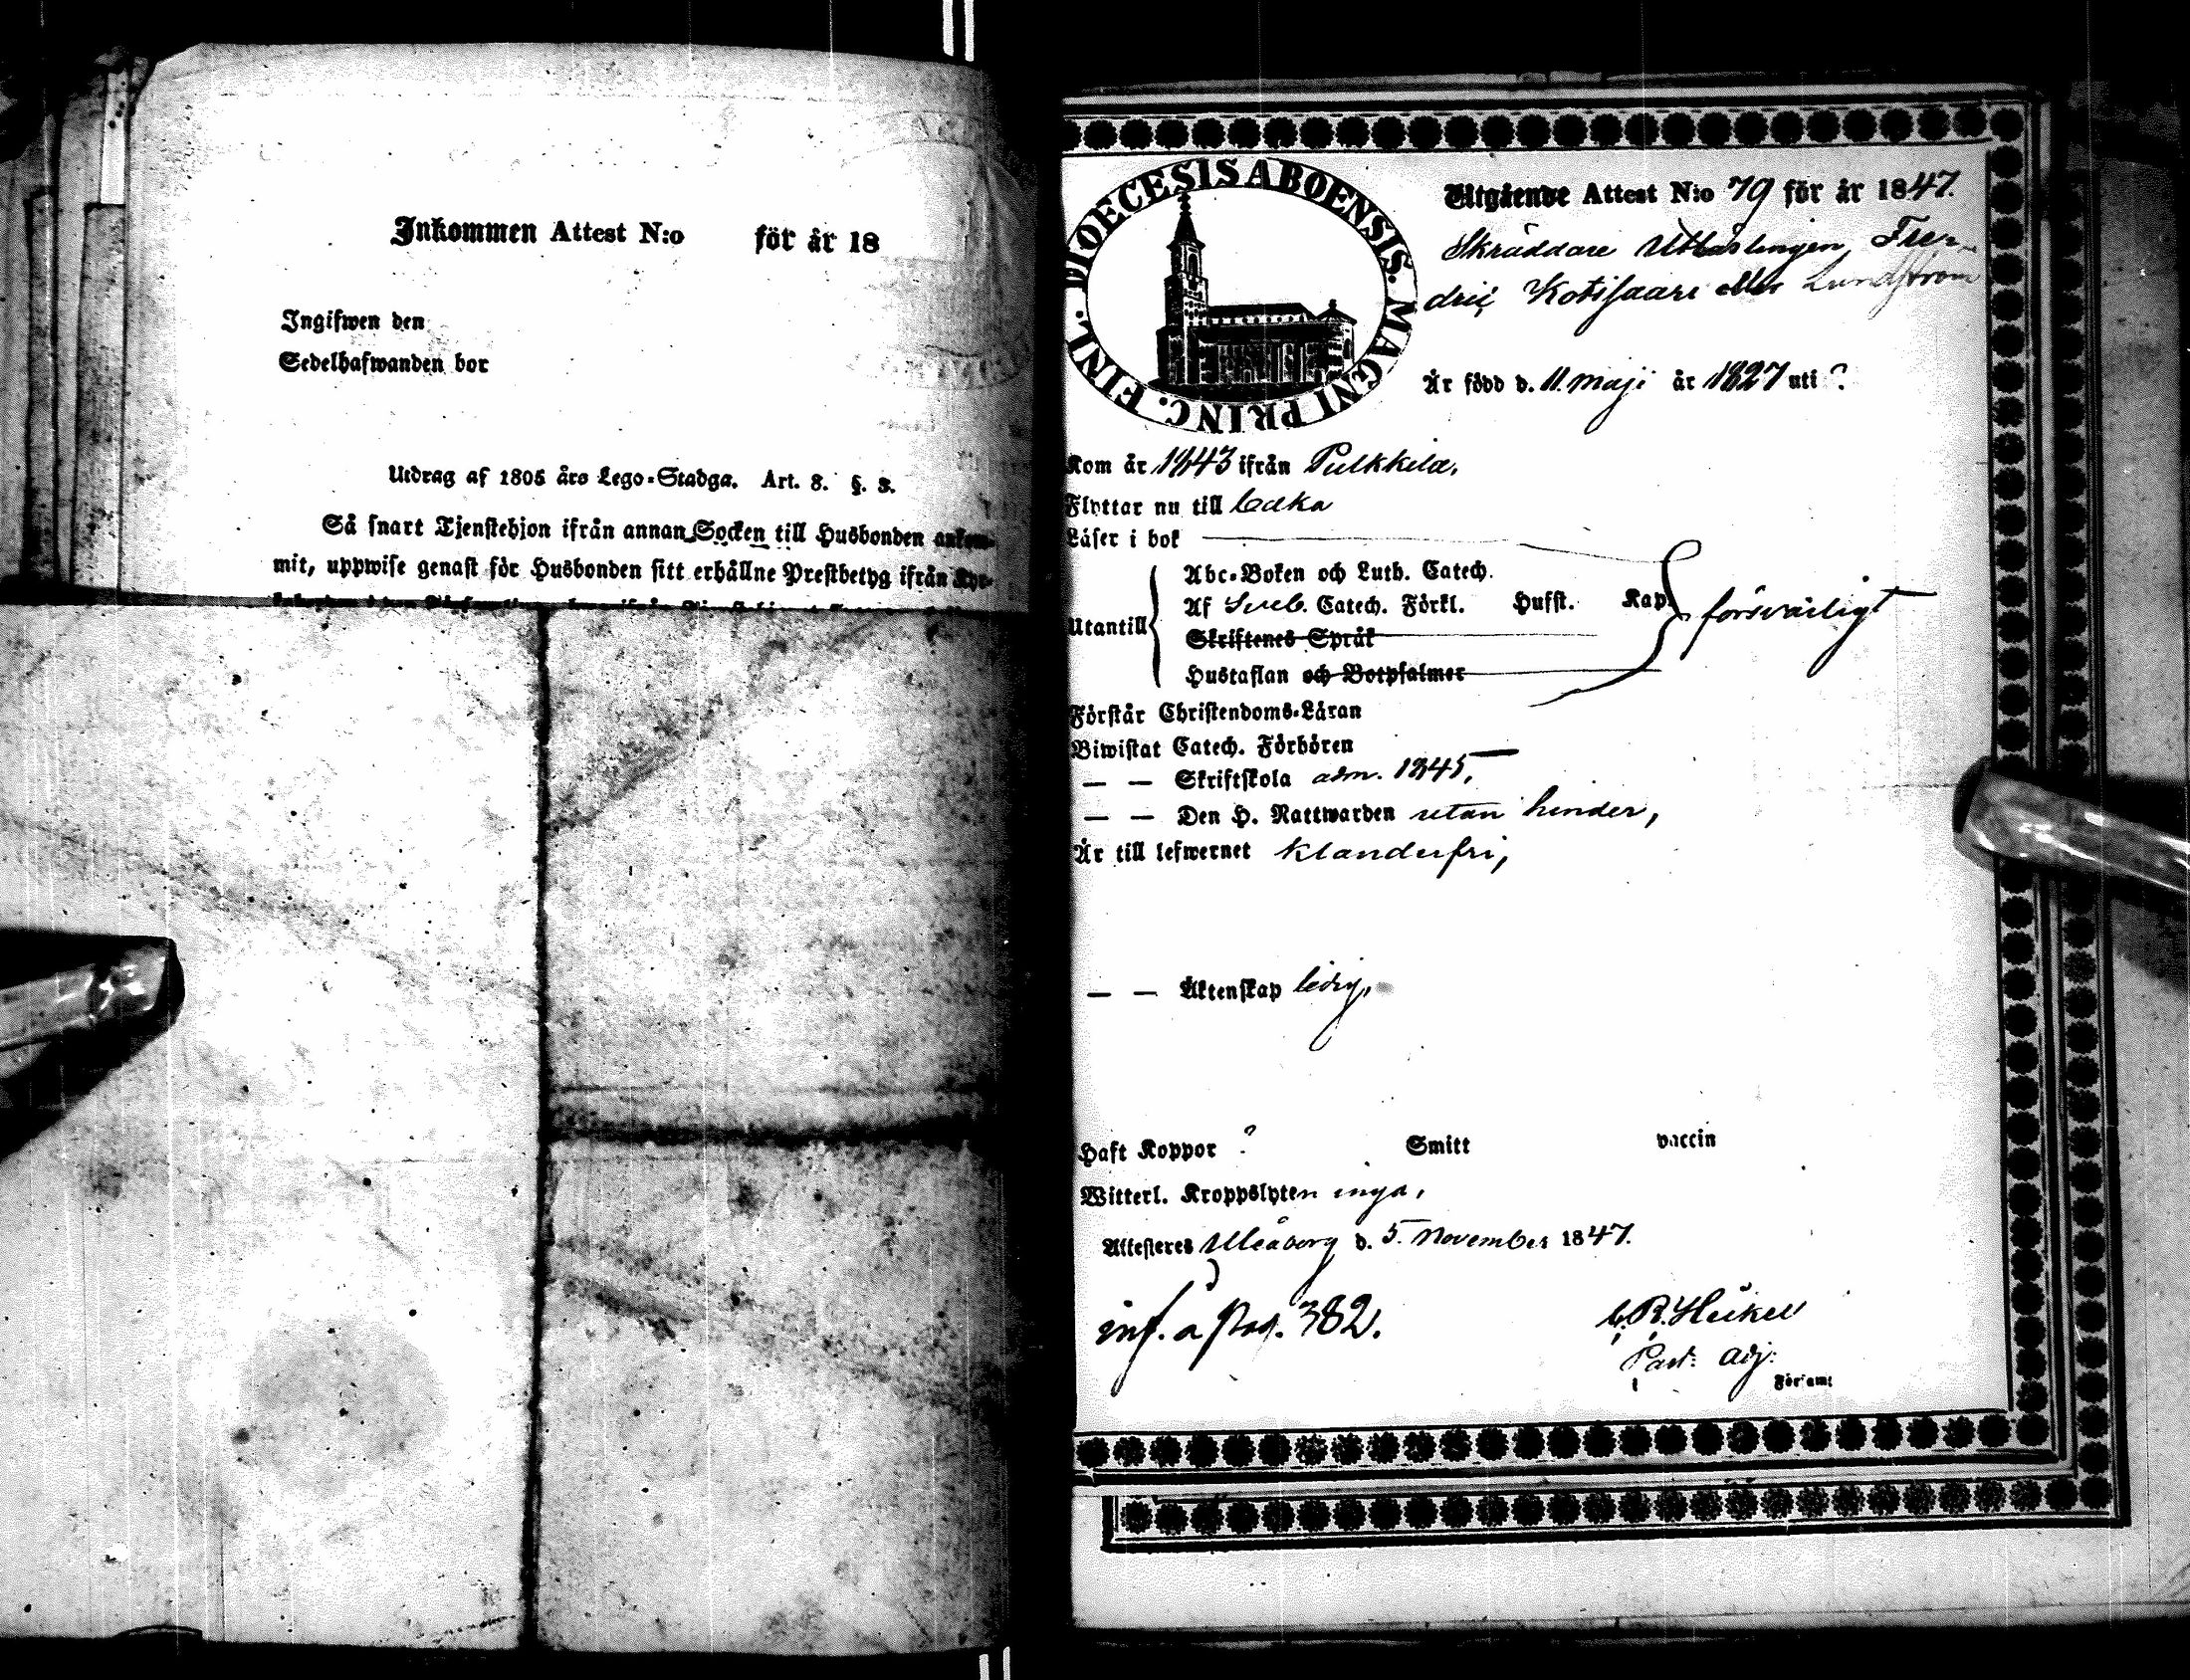 Inkommen Attest N:o för år 18
Ingifwen den
Sedelhafwanden bor
Utdrag af 1805 års Lego-Stadga. Art. 8. §. 3.
Så snart Tjenstehjon ifrån annan Socken till Husbonden ankom-
mit, uppwise genast för Husbonden sitt erhållne Prestbetyg ifrån Kyr-
DIOECESIS ABOENSIS. MAGNI PRINC. FINL.
Utgående Attest N:o 79 för år 1847.
Skräddare Utlärlingen, Fre-
dric Kotisaari eller Lundström
Är född d. 11. Maji år 1827 uti ?
Kom år 1843 ifrån Pulkkila,
Flyttar nu till
Läser i bok
Abc-Boken och Luth. Catech.
Af Sveb. Catech. Förkl. Husst. Kap.
Utantill försvarligt
Skriftenes Språk
Hustaflan och Botpsalmer
Förstår Christendoms-Läran
Biwistat Catech. Förhören
— — Skriftskola adm. 1845,
— — Den H. Nattwarden utan hinder,
Är till lefwernet klanderfri,
— — Äktenskap ledig,
Haft Koppor ? Smitt vaccin
Witterl. Kroppslyten inga,
Attesteras Uleåborg d. 5. November 1847.
inf. å pag. 382.
C. R. Heikel
Past: adj:
Församl